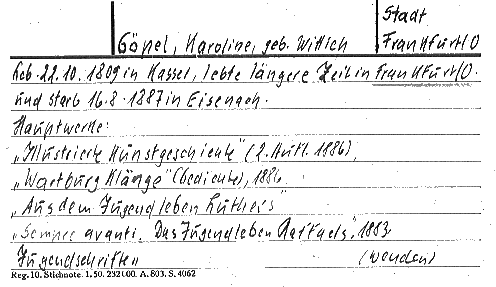 Stadt
Göpel, Karoline, geb. Wittich Frankfurt/O
Geb. 22.10.1809 in Kassel, lebte längere Zeit in Frankfurt/O.
und starb 16.8.1887 in Eisenach.
Hauptwerke:
„Illustrierte Kunstgeschichte" (2. Aufl. 1886),
„Wartburg Klänge" (Gedichte), 1886
„Aus dem Jugendleben Luthers"
„Semper avanti. Das Jugendleben Raffaels", 1883
Jugendschriften (wenden)
Reg. 10. Stichnote. 1. 50. 232/00. A. 803. S. 4062